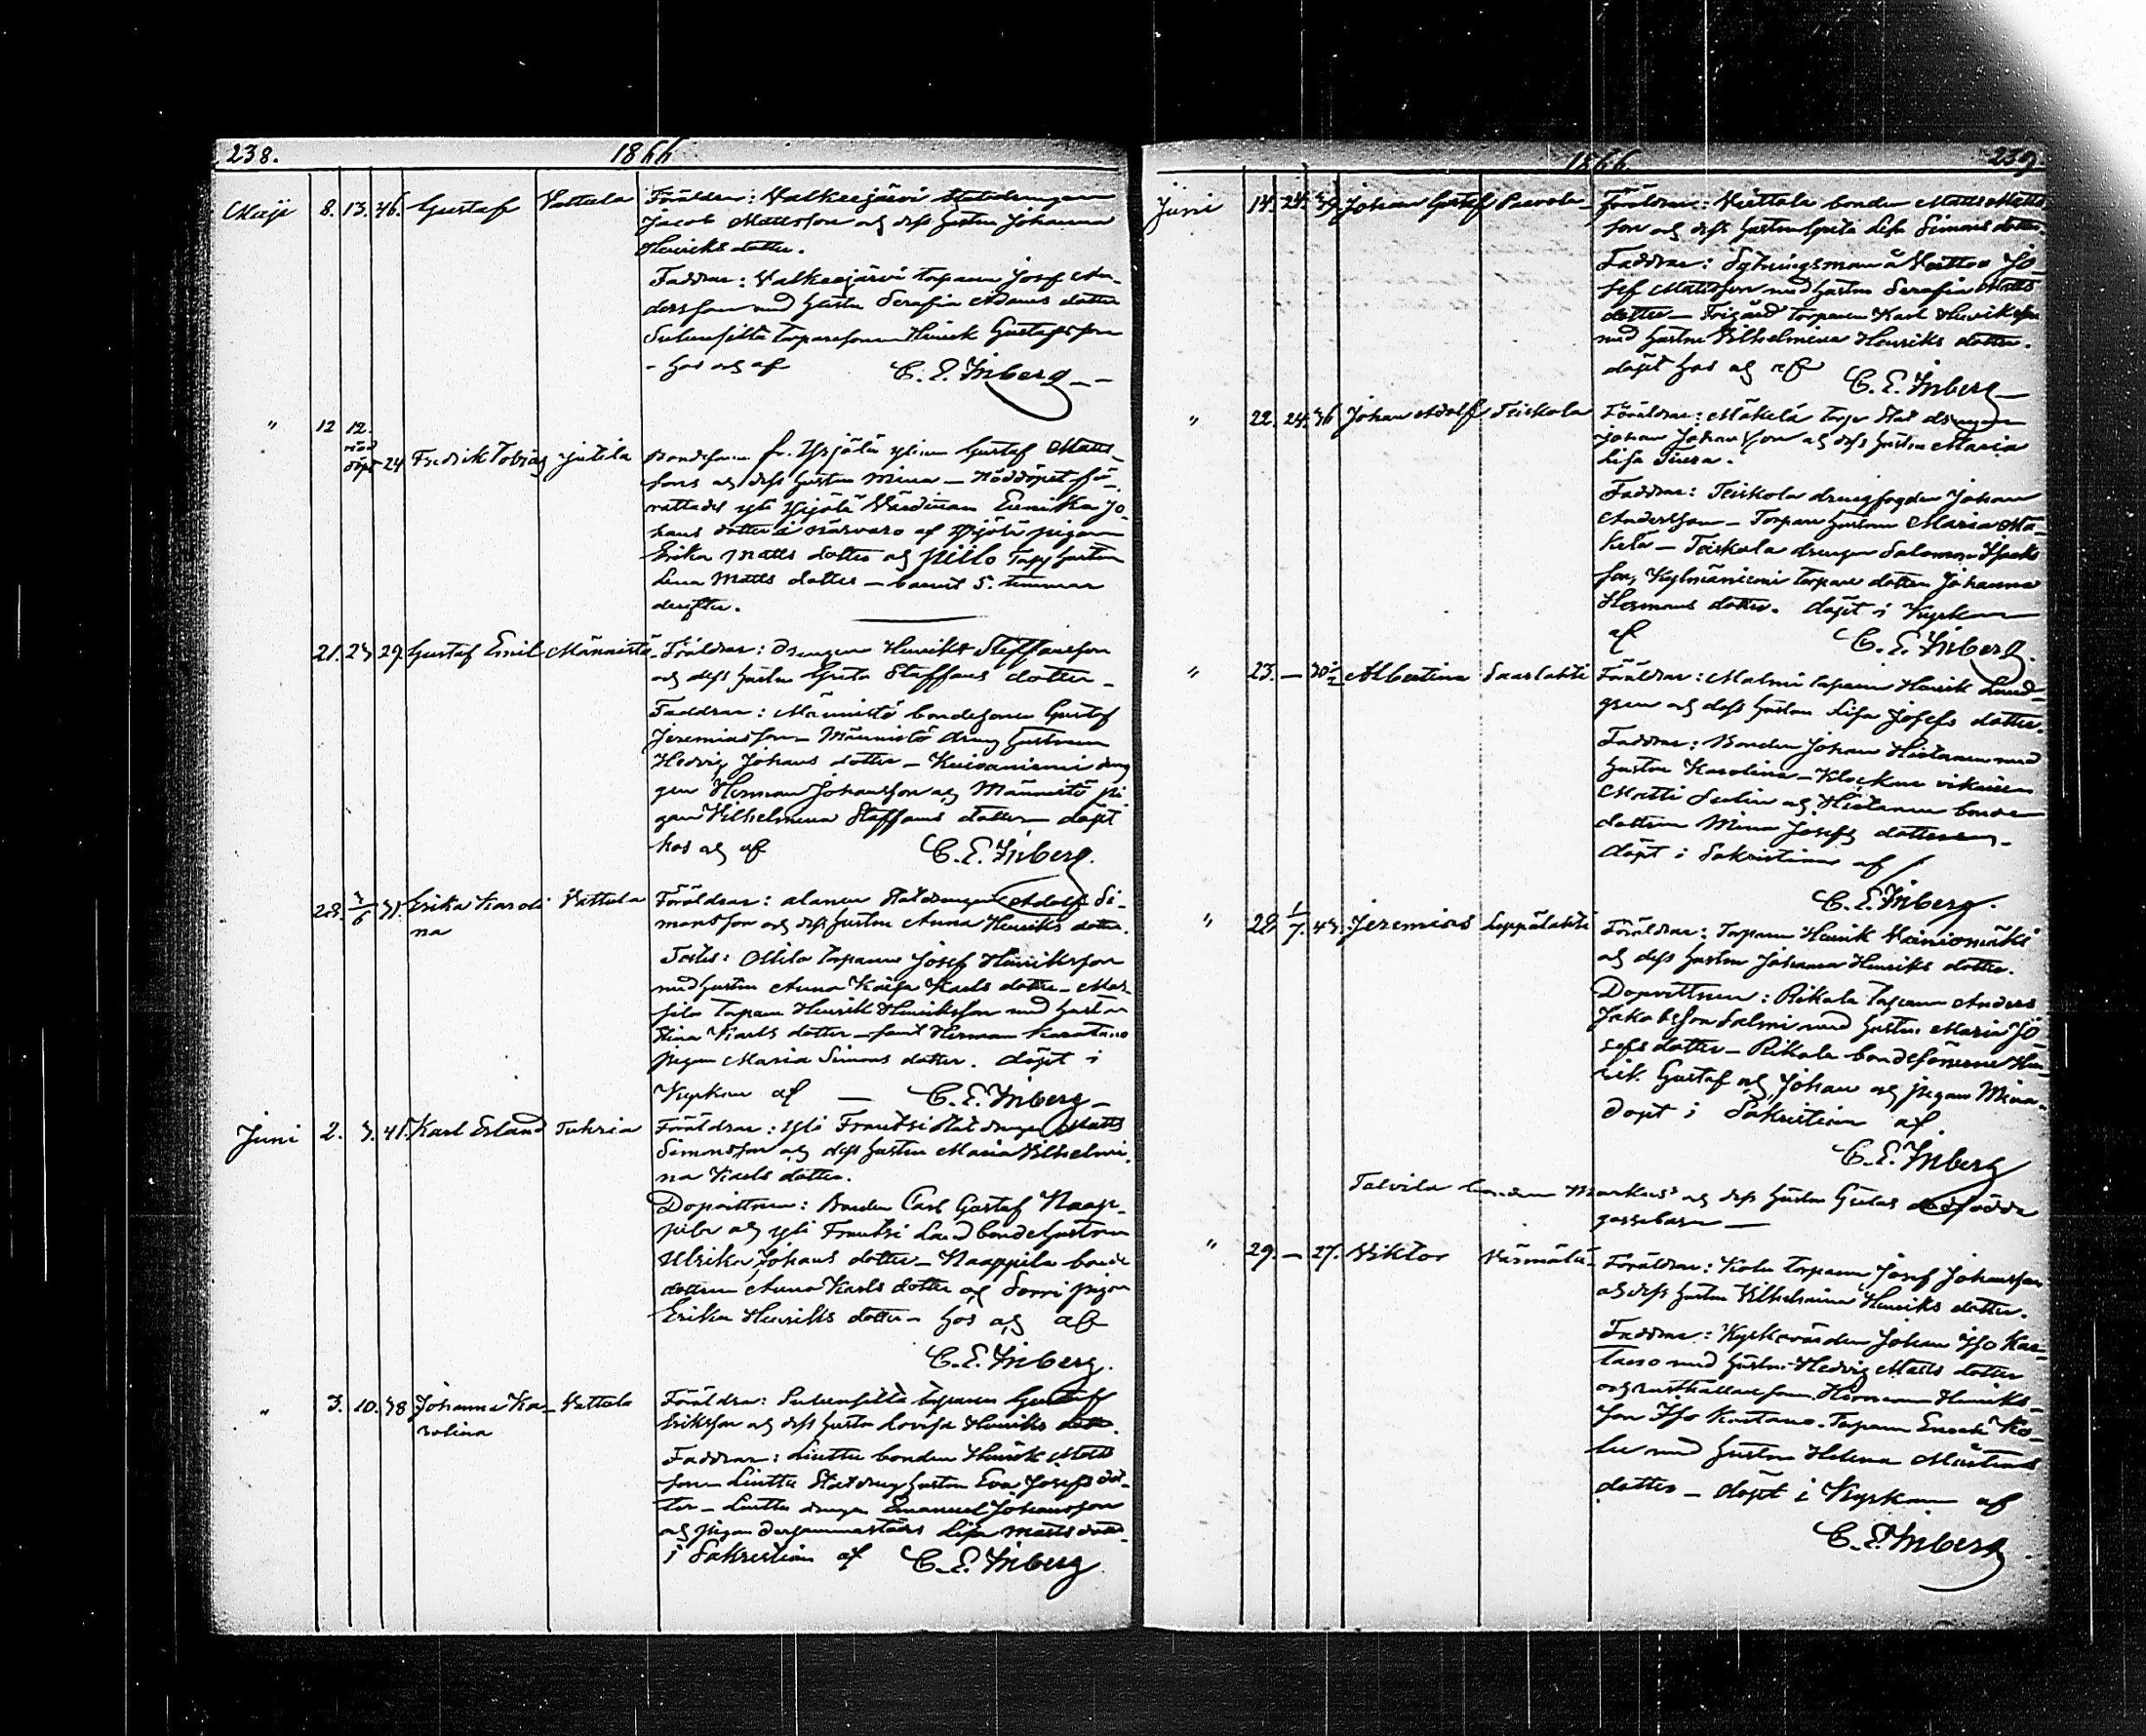 238. 1866
Maji 8. 13. 46. Gustaf Vattula Föräldrar: Valkeejärvi Statdrengen
Jacob Mattsson och dess hustru Johanna
Henriks dotter.
Faddrar: Valkeejärvi torparen Josef An-
dersson med hustru Serafia Adams dotter
torparesonen Henrik Gustafsson
- hos och af C. E. Inberg
" 12 12.
nöd
döpt 24 Fredrik Tobias Jutila Bondesonen fr. Yrjölä Gustaf Matts-
sons och dess hustru Mina - Nöddopet för-
rättades Yrjölä Värdinnan Jo-
hans dotter i närvaro af Yrjölä pigan
Erika Matts dotter och Pillo hustrun
Lena Matts dotter - barnet 5. timmar
derefter.
21. 23 29. Gustaf Emil Männistö Föräldrar: Drengen Henrik Steffansson
och dess hustru Greta Staffans dotter -
Faddrar: Männistö bondesonen Gustaf
Jeremiasson - Männistö dreng hustrun
Hedvig Johans dotter - Kuivaniemi dren
gen Herman Johansson och Männistö pi
gan Vilhelmina Staffans dotter döpt
hos och af C. E. Inberg.
28. 3/6 31. Erika Karoli Vattula Föräldrar: Statdrengen Adolf Si-
na monsson och dess hustru Anna Henriks dotter.
Testes: Ollila torparen Josef Henriksson
med hustru Anna Kaisa Karls dotter - Mat-
tila torparen Henrik Henriksson med hustru
Stina Karls dotter - samt Herman
pigan Maria Simons dotter. döpt i
Kyrkan af — C. E. Inberg -
Juni 2. 3. 41. Karl Erland Tuhria Föräldrar: Yli Frantsi Statdrengen Matts
Simonsson och dess hustru Maria Vilhelmi
na Karls dotter.
Dopvittnen: Bonden Carl Gustaf Naap-
pila och Yli Frantsi Landbonde hustrun
Ulrika Johans dotter - Naappila bonde
dottren Anna Karls dotter och Sorri pigan
Erika Henriks dotter - hos och af
C. E. Inberg.
" 3. 10. 38 Johanna Ka- Vattula Föräldrar: torparen Gustaf
rolina Eriksson och dess hustru Lovisa Henriks dotter.
Faddrar: Liutta bonden Henrik Matts
son Liutta Statdreng hustrun Eva Josefs dot-
ter - Liutta drengen Emanuel Johansson
och pigan dersammastädes Lisa Matts dotter
i Sakristian af C. E. Inberg
1866. 239.
Juni 14. 24. 39 Johan Gustaf Paavola Föräldrar: bonden Matts Matts
son och dess hustru Greta Lisa Simons dotter.
Faddrar: Sytningsman å Jo-
sef Mattsson med hustru Serafia Matts
dotter - torparen Karl Henriksson
med hustru Vilhelmina Henriks dotter.
döpt hos och af C. E. Inberg
" 22. 24. 36 Johan Adolf Teiskola Föräldrar: Mäkelä torp Statdrengen
Johan Johansson och dess hustru Maria
Lisa
Faddrar: Teiskola drengfogden Johan
Andersson - Torpare hustrun Maria Mä-
kelä - Teiskola drengen Salomon
son, Kylmäniemi torpare dotter Johanna
Hermans dotter. döpt i Kyrkan
af C. E. Inberg.
" 23. — Albertina Saarlahti Föräldrar: Malmi torparen Henrik Lind-
gren och dess hustru Lisa Josefs dotter.
Faddrar: Bonden Johan Hietanen med
hustru Karolina - Klockare vikarien
Matti och Hietanen bonde
dottren Mina Josefs dotter -
döpt i Sakristian af
C. E. Inberg.
" 28 1/7. 43. Jeremias Leppälahti Föräldrar: Torparen Henrik Vainionmäki
och dess hustru Johanna Henriks dotter.
Dopvittnen: Rikala torparen Anders
Jakobsson Salmi med hustru Maria Jo-
sefs dotter - Rikala bondesönerne Hen-
rik Gustaf och Johan och pigan Mina -
döpt i Sakristian af
C. E. Inberg
Talvila bonden Markus och dess hustru dödfödda
gossebarn —
" 29. — 27. Viktor Värmälä Föräldrar: Kolu torparen Josef Johansson
och dess hustru Vilhelmina Henriks dotter.
Faddrar: Kyrkovärden Johan Iso Kar-
tano med hustru Hedvig Matts dotter
och rusthållare sonen Herman Henriks-
son Iso Kartano. Torparen Enok Ko-
lu med hustru Helena Mårtens
dotter - döpt i Kyrkan af
C. E. Inberg